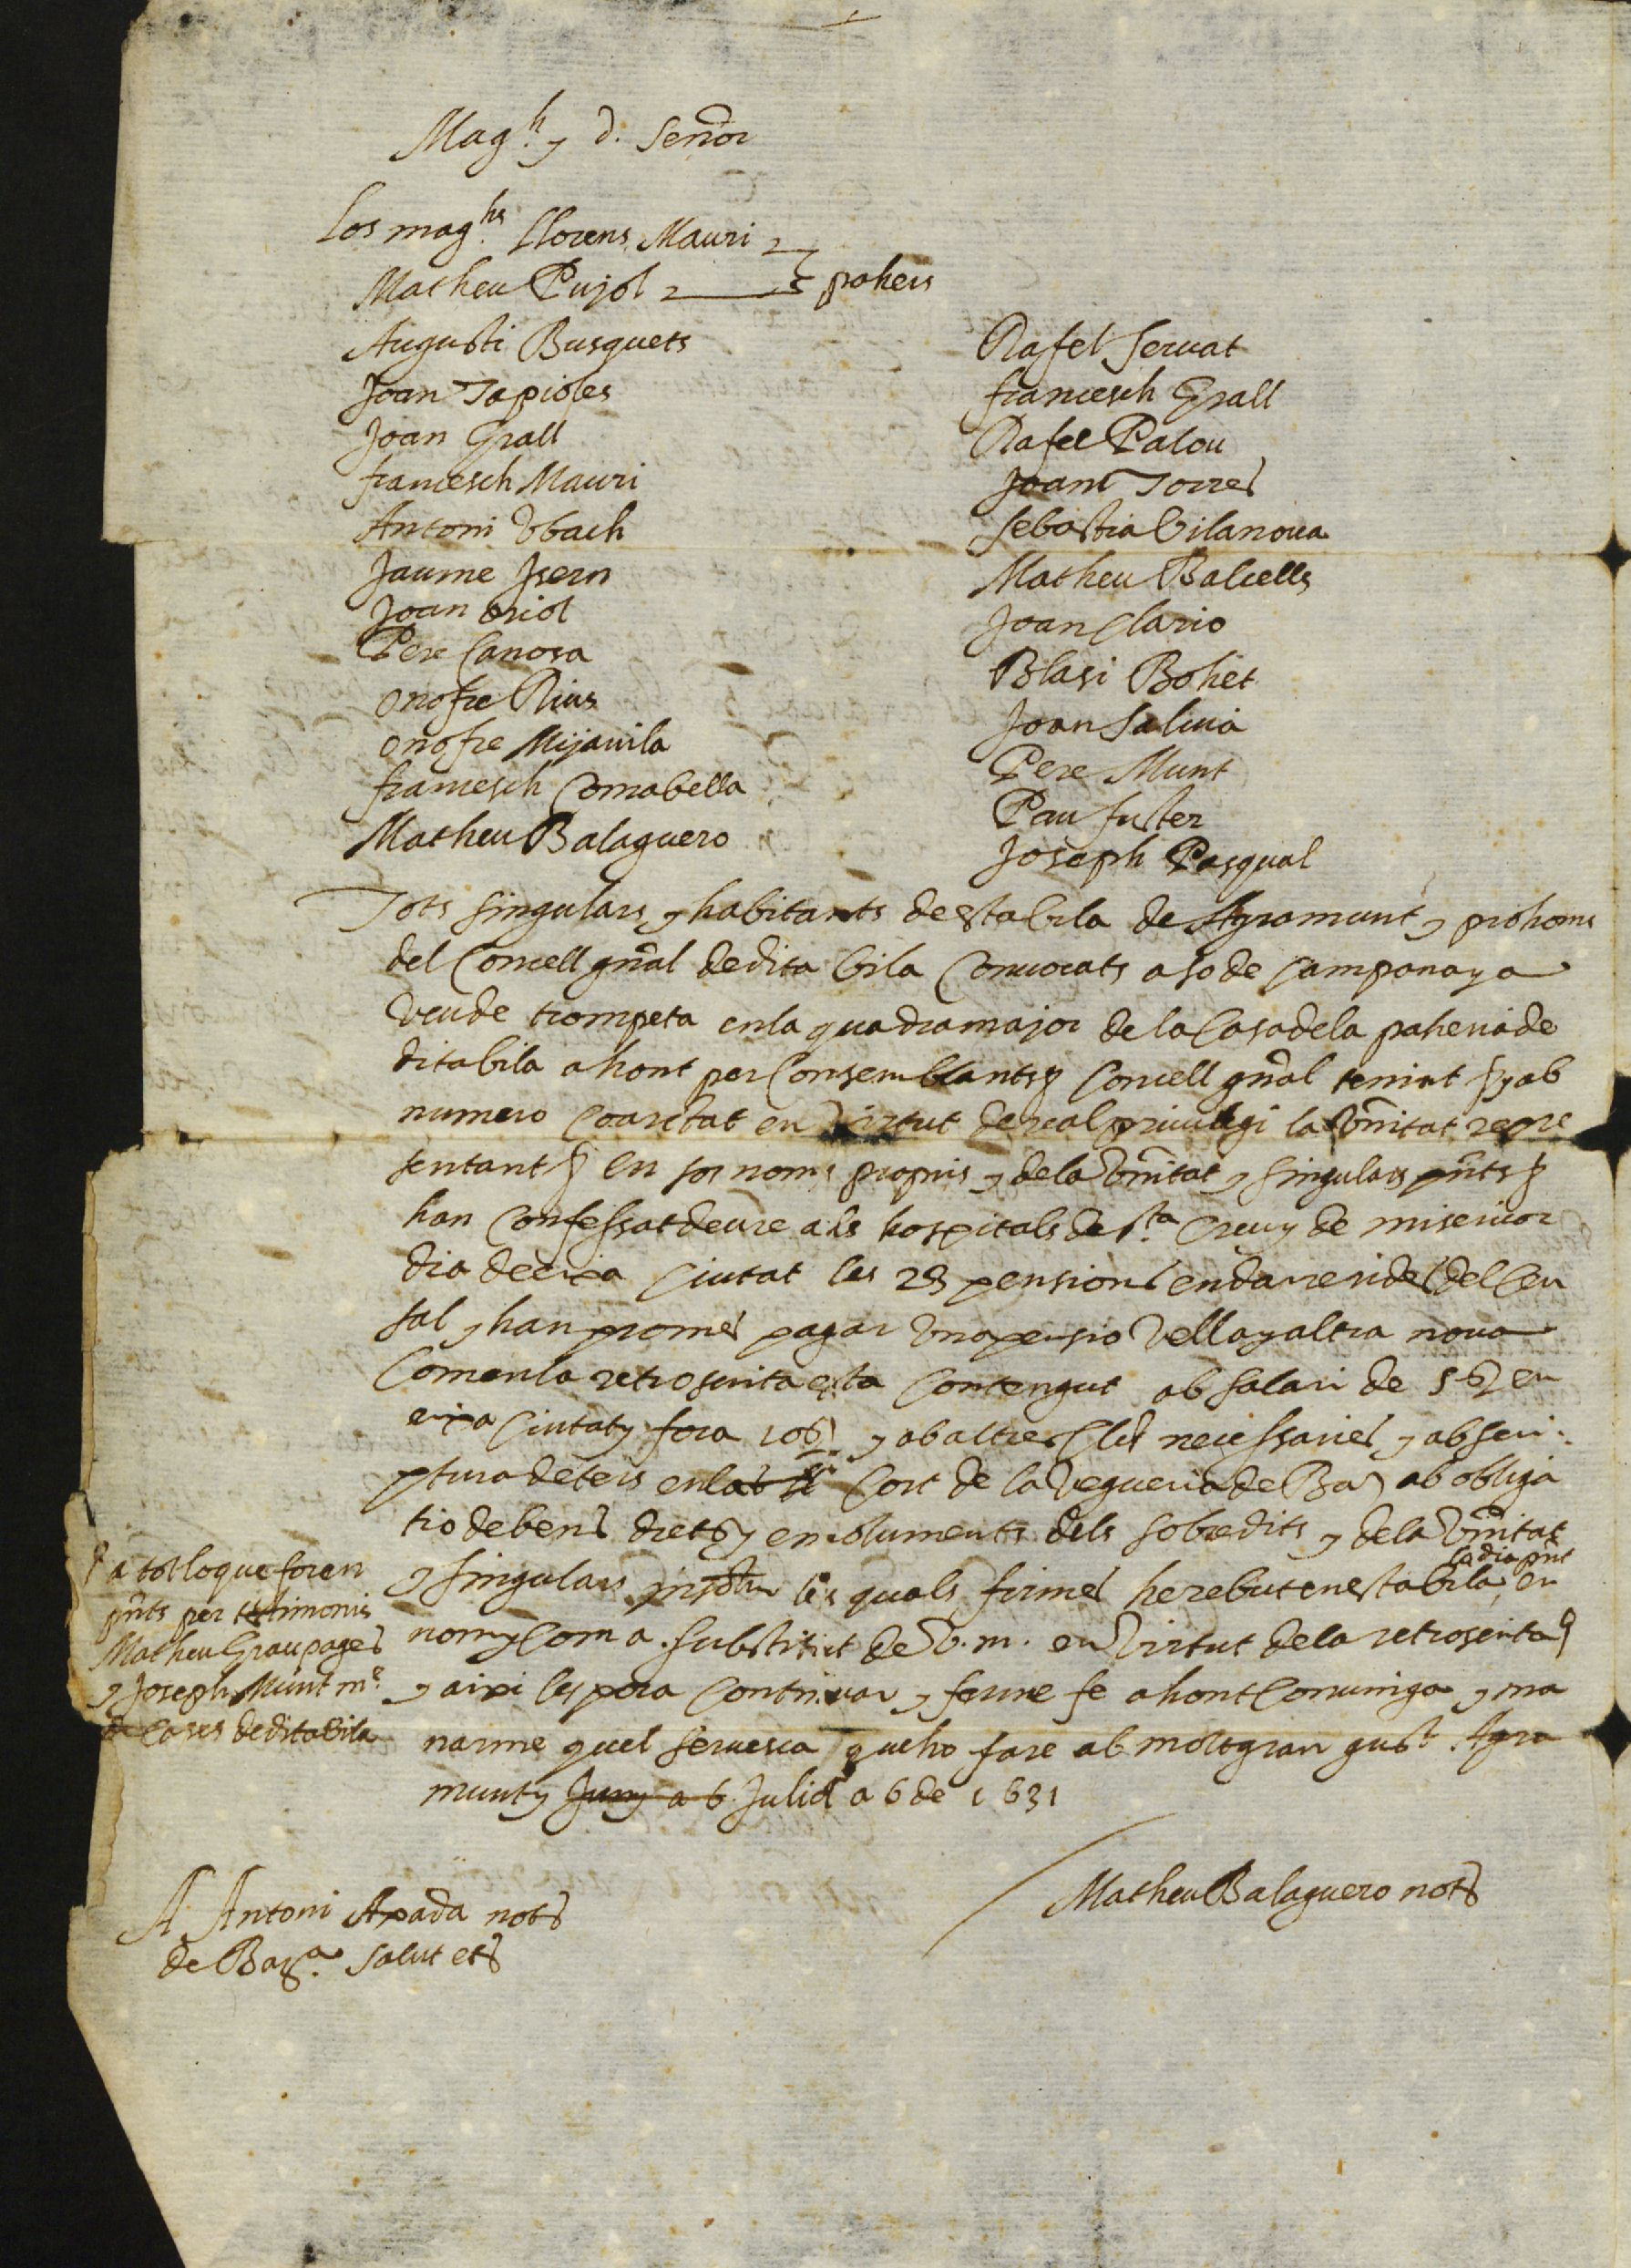 Mag.h y d. Señor
Los mag.hs Llorens Mauri
Matheu Pujol pahers
Augusti Busquets
Joan Tapioles
Joan Grall
francesch Mauri
Antoni Vbach
Jaume Jsern
Joan oriol
Pere Canosa
onofre Rius
onofre Mijauila
francesch Comabella
Matheu Balaguero
Rafel Seruat
francesch Grall
Rafel Palou
Joan Torres
Sebastia Vilanoua
Matheu Balcells
Joan Clario
Blasi Bohet
Joan Saluia
Pere Munt
Pau fuster
Joseph Pasqual
Tots singulars y habitants de esta vila de Agramunt y prohoms
del Concell gñal de dita vila Conuocats a so de campana y a
veu de trompeta en la quadra major de la Casa de la paheria de
dita vila ahont per Consemblants Concell gñal tenint y ab
numero Coarctat en virtut de real priuilegi la vñitat repre
sentant en sos noms propris y de la vñitat y singulars pñts
han Confessat deure als hospitals de s.ta Creu y de misericor
dia de eixa Ciutat les 28 pensions endarrerides del Cen
sal y han promes pagar vna pensio vella y altra noua
Com en la retroscrita esta Contengut ab salari de 5 en
eixa Ciutat y fora 10 y ab altres cles necessaries y ab scri
ptura de ters en la Cort de la vegueria de Bar ab obliga
tio de bens drets y emoluments dels sobredits y de la vñitat
y singulars les quals firmes he rebut en esta vila, lo dia pñt en
nom y Com a substitut de V. m. en virtut de la retroscrita
y aixi les pora Continuar y ferne fe ahont Conuinga y ma
narme quel seruesca que ho fare ab molt gran gust. Agra
munt y Juny a 6. Juliol a 6 de 1631
a tot lo que foren
pñts per testimonis
Matheu Grau pages
y Joseph Munt m.e
de Cases de dita vila
Matheu Balaguero not
A Antoni Axada not
de Bar.a salut et